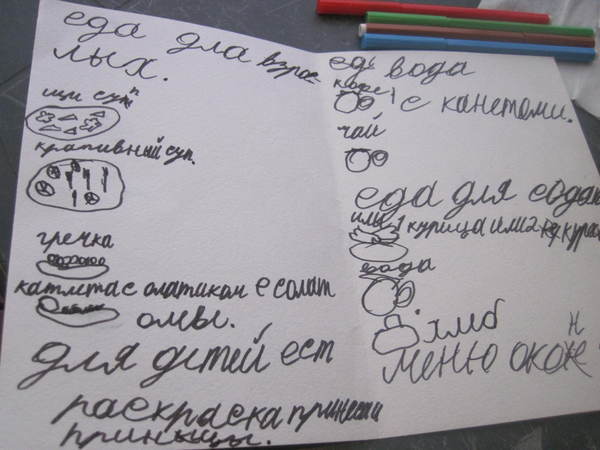 еда для взрос
лых.
щи суп
крапивный суп.
гречка
катлета с олатиком с солат
омы.
для детей ест
раскраска принести
приныцы.
еда вода
кофе
с канетоми.
чай
еда для собак
или 1 курица или 2
вода
хлеб
меню окон